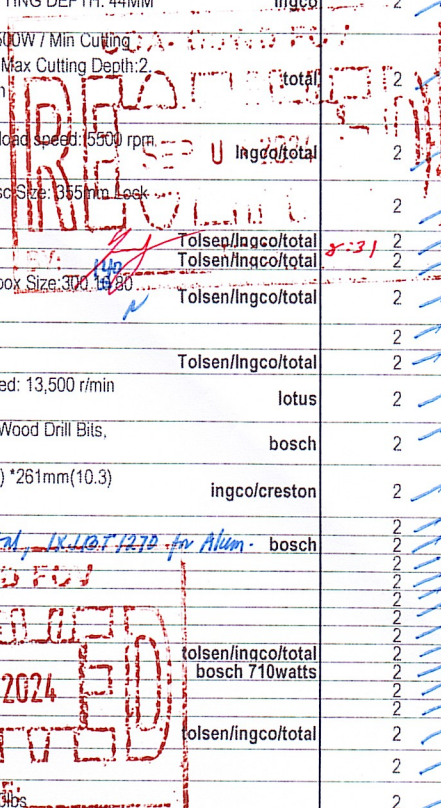 TING DEPTH: 44MM ingco 2
500W / Min Cutting
Max Cutting Depth:2. total 2
load speed: 5500 rpm Ingco/total 2
sc Size: 355mm Lock 2
RECEIVED
Tolsen/Ingco/total 2
8:31
Tolsen/Ingco/total 2
box Size:300 Tolsen/Ingco/total 2
2
Tolsen/Ingco/total 2
ed: 13,500 r/min lotus 2
Wood Drill Bits, bosch 2
) *261mm(10.3) ingco/creston 2
2
for Alum. bosch 2
2
2
2
2
2
tolsen/ingco/total 2
bosch 710watts 2
2024
2
2
tolsen/ingco/total 2
2
lbs 2